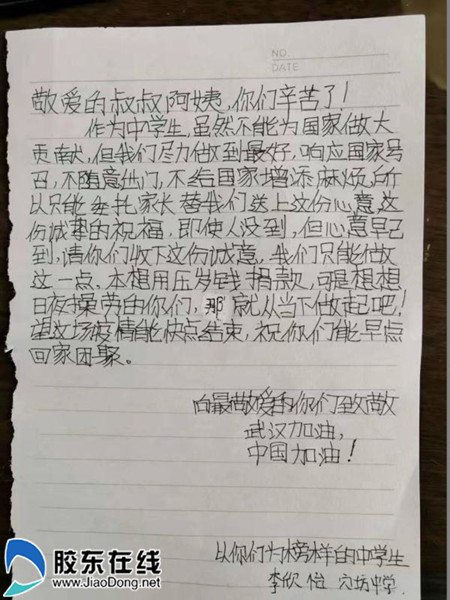 NO.
DATE
敬爱的叔叔阿姨,你们辛苦了!
作为中学生,虽然不能为国家做大
贡献,但我们尽力做到最好,响应国家号
召,不随意出门,不给国家增添麻烦,所
以只能委托家长替我们送上这份心意,这
份诚挚的祝福,即使人没到,但心意早已
到,请你们收下这份诚意,我们只能做
这一点、本想用压岁钱捐款,可是想想
日夜操劳的你们,那就从当下做起吧!
望这场疫情能快点结束,祝你们能早点
回家团聚。
向最敬爱的你们致敬
武汉加油,
中国加油!
以你们为榜样的中学生
李欣怡 穴坊中学.
胶东在线
www.JiaoDong.net